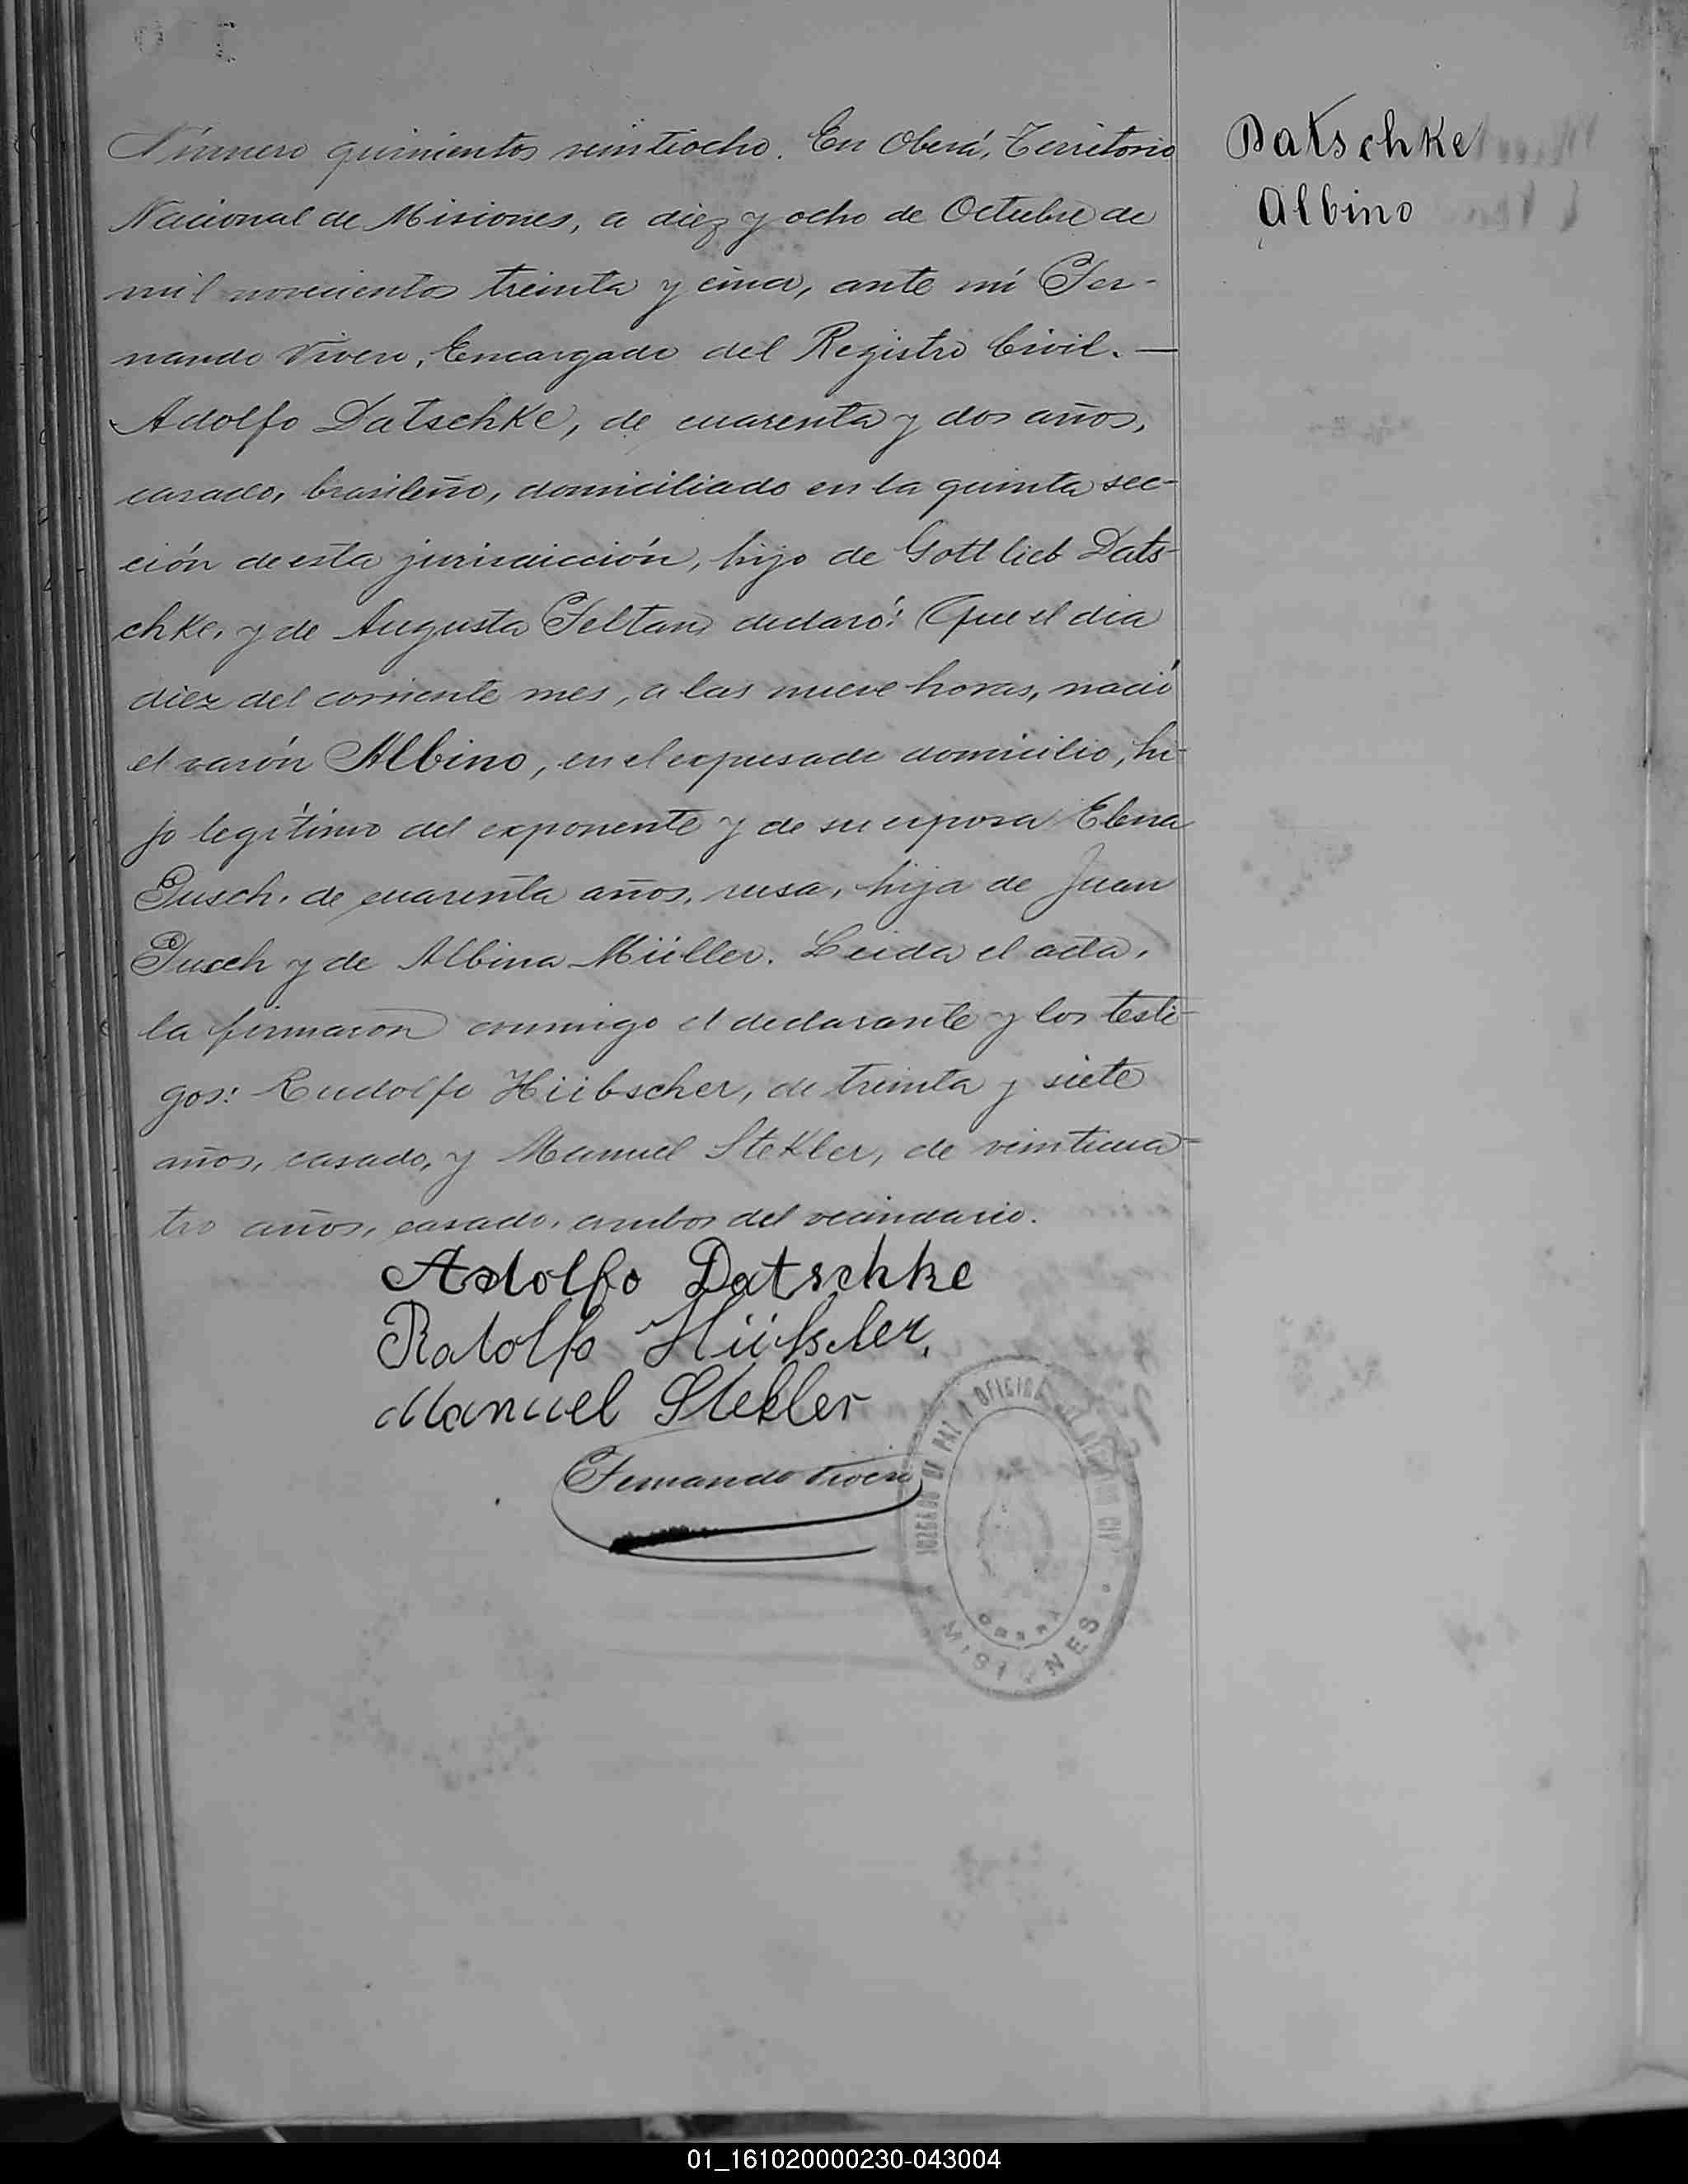 Número quinientos veintiocho. En Oberá, Territorio
Nacional de Misiones, a diez y ocho de Octubre de
mil novecientos treinta y cinco, ante mí Fer-
nando Vivero, Encargado del Registro Civil. —
Adolfo Datschke, de cuarenta y dos años,
casado, brasileño, domiciliado en la quinta sec-
ción de esta jurisdicción, hijo de Gottlieb Dats-
chke, y de Augusta Feltan, declaró: Que el día
diez del corriente mes, a las nueve horas, nació
el varón Albino, en el expresado domicilio, hi-
jo legítimo del exponente y de su esposa Elena
Pusch, de cuarenta años, rusa, hija de Juan
Pusch y de Albina Müller. Leida el acta,
la firmaron conmigo el declarante y los testi-
gos: Rudolfo Hübscher, de treinta y siete
años, casado, y Manuel Stekler, de veinticua-
tro años, casado, ambos del vecindario.
Adolfo Datschke
Rodolfo Hübscher,
Manuel Stekler
Fernando Vivero
JUZGADO DE PAZ Y OFICINA DEL REGISTRO CIVIL
OBERÁ
MISIONES
Datschke
Albino
01_161020000230-043004